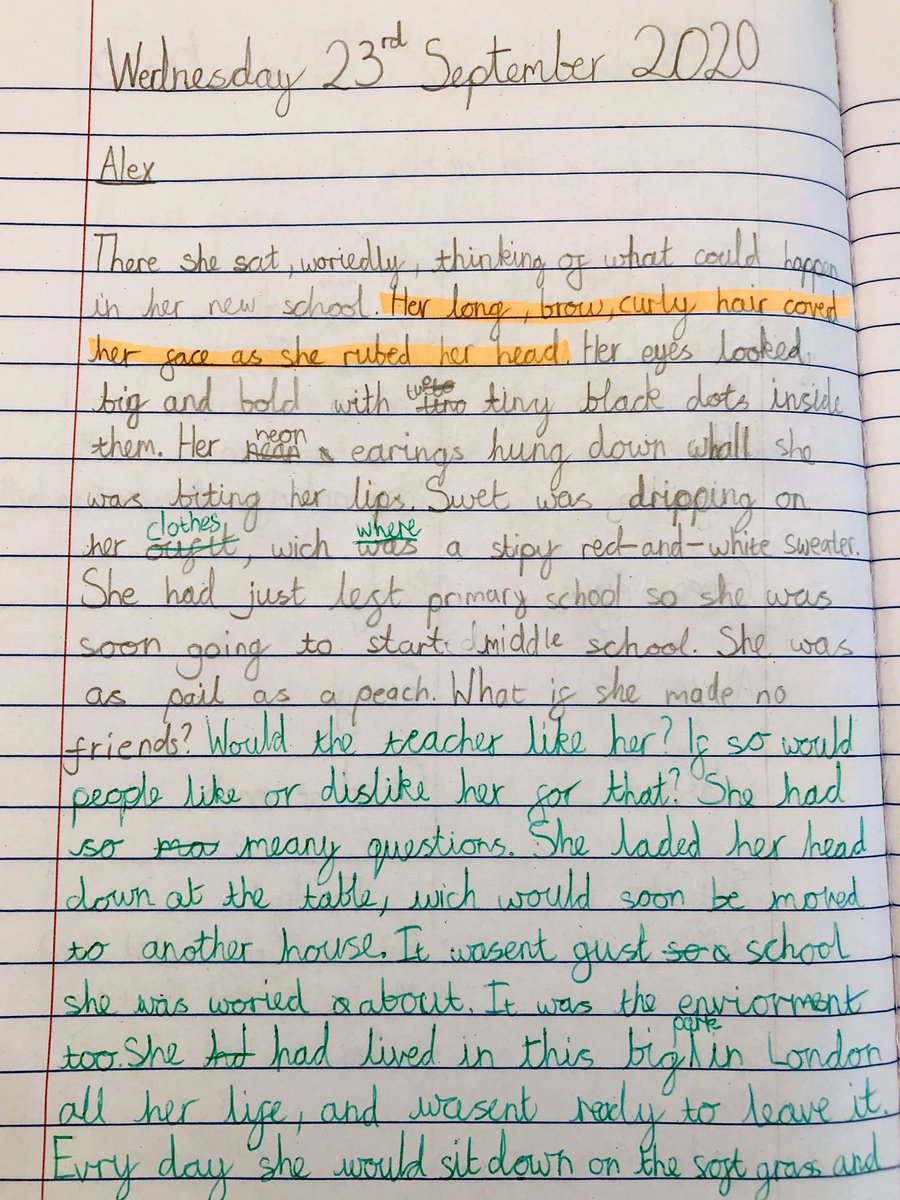 Wednesday 23rd September 2020
Alex
There she sat, woriedly, thinking of what could happen
in her new school. Her long, brow, curly hair coved
her face as she rubed her head. Her eyes looked
big and bold with tiny black dots inside
them. Her neon earings hung down whall she
was biting her lips. Swet was dripping on
her clothes, wich where a stipy red-and-white sweater.
She had just left primary school so she was
soon going to start middle school. She was
as pail as a peach. What if she made no
friends? Would the teacher like her? If so would
people like or dislike her for that? She had
so meany questions. She laded her head
down at the table, wich would soon be moved
to another house. It wasent gust school
she was woried about. It was the enviorment
too. She had lived in this big parke in London
all her life, and wasent ready to leave it.
Evry day she would sit down on the soft grass and